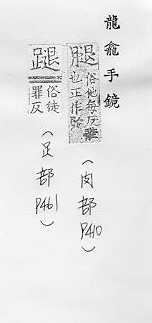 龍龕手鏡
腿
俗他每反髀
也正作骽
（肉部 P410）
蹆
俗徒
罪反
（足部 P461）